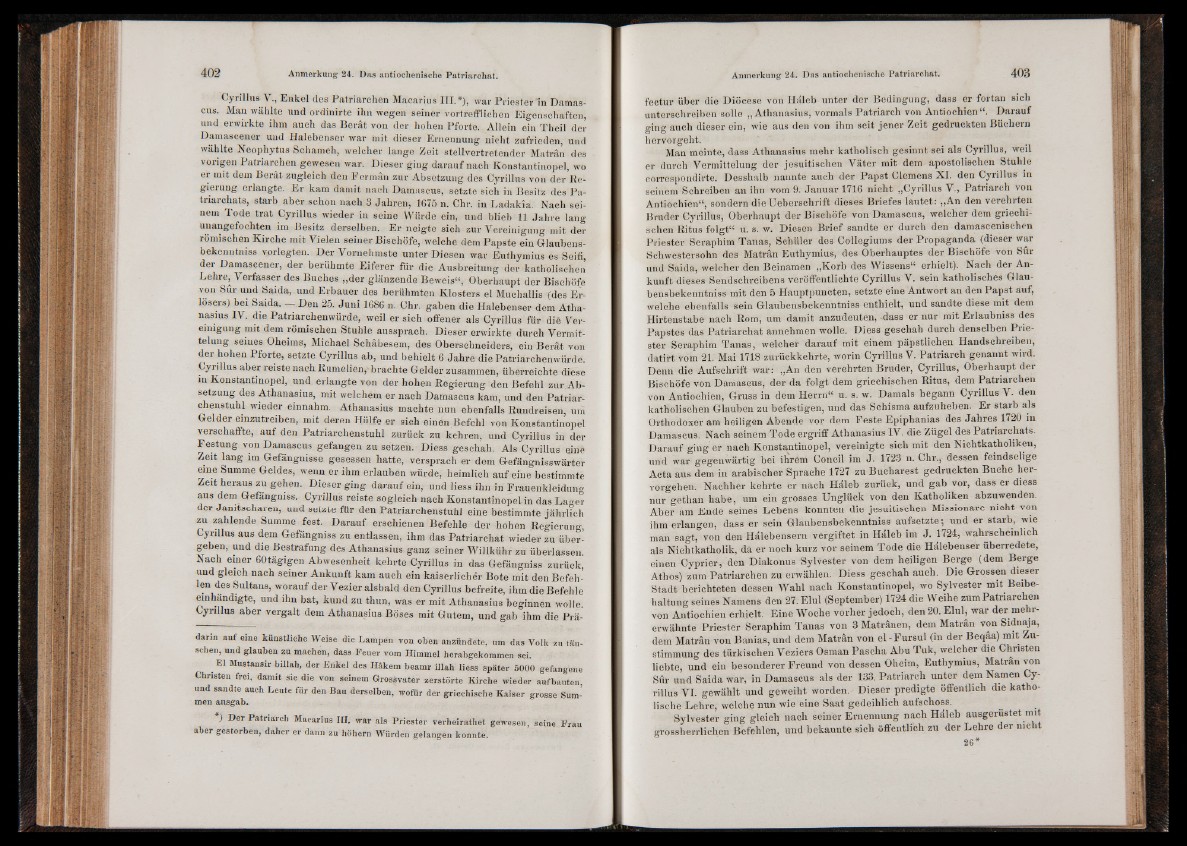 402 Anmerkung 24. Das antiochenische Patriarchat.
Cyrillus V., Enkel des Patriarchen Macarius III.*), war Priester in Damas-
cus. Man wählte und ordinirte ihn wegen seiner vortrefflichen Eigenschaften,
und erwirkte ihm auch das Berât von der hohen Pforte. Allein ein Theil der
Damascener und Halebenser war mit dieser Ernennung nicht zufrieden, und
wählte Neophytus Schameh, welcher lange Zeit stellvertretender Matrân des
vorigen Patriarchen gewesen war. Dieser ging darauf nach Konstantinopel, wo
er mit dem Berât zugleich den Fermân zur Absetzung des Cyrillus von der Re-
gierung erlangte. Er kam damit nach Damascus, setzte sich in Besitz des Pa-
triarchats, starb aber schon nach 3 Jahren, 1675 n. Chr. in Ladakia. Nach sei-
nem Tode trat Cyrillus wieder in seine Würde ein, und blieb 11 Jahre lang
unangefochten im Besitz derselben. Er neigte sich zur Vereinigung mit der
römischen Kirche mit Vielen seiner Bischöfe, welche dem Papste ein Glaubens-
bekenntniss vorlegten. Der Vornehmste unter Diesen war Euthymius es Seifi,
der Damascener, der berühmte Eiferer für die Ausbreitung der katholischen
Lehre, Verfasser des Buches „der glänzende Beweis“, Oberhaupt der Bischöfe
von Sûr und Saida, und Erbauer des berühmten Klosters el Muchallis (des Er-
lösers) bei Saida. — Den 25. Juni 1686 n. Chr. gaben die Halebenser dem Atha-
nasius IV. die Patriarchenwürde, weil er sich offener als Cyrillus für die Ver-
einigung mit dem römischen Stuhle aussprach. Dieser erwirkte durch Vermit-
telung seines Oheims, Michael Schâbesem, des Oberschneiders, ein Berât von
der hohen Pforte, setzte Cyrillus ab, und behielt 6 Jahre die Patriarchenwürde.
Cyrillus aber reiste nach Rumelien, brachte Gelder zusammen, überreichte diese
in Konstantinopel, und erlangte von der hohen Regierung den Befehl zur Ab-
setzung des Athanasius, mit welchem er nach Damascus kam, und den Patriar-
chenstuhl wieder einnahm. Athanasius machte nun ebenfalls Rundreisen, um
Gelder einzutreiben, mit deren Hülfe er sich einen Befehl von Konstantinopel
verschaffte, auf den Patriarchenstuhl zurück zu kehren, und Cyrillus in der
Festung von Damascus gefangen zu setzen. Diess geschah. Als Cyrillus eine
Zeit lang im Gefängnisse gesessen hatte, versprach er dem Gefängnisswärter
eine Summe Geldes, wenn er ihm erlauben würde, heimlich auf eine bestimmte
Zeit heraus zu gehen. Dieser ging darauf ein, und liess ihn in Frauenkleidung
aus dem Gefängniss. Cyrillus reiste sogleich nach Konstantinopel in das Lager
der Janitscharen, und setzte für den Patriarchenstuhl eine bestimmte jährlich
zu zahlende Summe fest. Darauf erschienen Befehle der hohen Regierung,
Cyrillus aus dem Gefängniss zu entlassen, ihm das Patriarchat wieder zu über-
geben, und die Bestrafung des Athanasius ganz seiner Willkühr zu überlassen.
Nach einer 60tägigen Abwesenheit kehrte Cyrillus in das Gefängniss zurück,
und gleich nach seiner Ankunft kam auch ein kaiserlicher Bote mit den Befeh-
len des Sultans, worauf der Vezier alsbald den Cyrillus befreite, ihm die Befehle
einhändigte, und ihn bat, kund zu thun, was er mit Athanasius beginnen wolle.
Cyrillus aber vergalt dem Athanasius Böses mit Gutem, und gab ihm die Prä-
darin auf eine künstliche Weise die Lampen von oben anzündete, um das Volk zu täu-
schen, und glauben zu machen, dass Feuer vom Himmel herabgekommen sei.
El Mustansir billah, der Enkel des Hâkem beamr illah liess später 5000 gefangene
Christen frei, damit sie die von seinem Grossvater zerstörte Kirche wieder aufbauten,
und sandte auch Leute für den Bau derselben, wofür der griechische Kaiser grosse Sum-
men ausgab.
*) Der Patriarch Macarius III. war als Priester verheirathet gewesen, seine Frau
aber gestorben, daher er dann zu höhern Würden gelangen konnte.
Anmerkung 24. Das antiochenische Patriarchat. 403
fectur über die Diöcese von Hâleb unter der Bedingung, dass er fortan sich
unterschreiben solle „Athanasius, vormals Patriarch von Antiochien“. Darauf
ging auch dieser ein, wie aus den von ihm seit jener Zeit gedruckten Büchern
hervorgeht.
Man meinte, dass Athanasius mehr katholisch gesinnt sei als Cyrillus, weil
er durch Vermittelung der jesuitischen Väter mit dem apostolischen Stuhle
correspondirte. Desshalb nannte auch der Papst Clemens XI. den Cyrillus in
seinem Schreiben an ihn vom 9. Januar 1716 nicht „Cyrillus V., Patriarch von
Antiochien“, sondern die Ueberschrift dieses Briefes lautet: „An den verehrten
Bruder Cyrillus, Oberhaupt der Bischöfe von Damascus, welcher dem griechi-
schen Ritus folgt“ u. s. w. Diesen Brief sandte er durch den damascenischen
Priester Seraphim Tanas, Schüler des Collegiums der Propaganda (dieser war
Schwestersohn des Matrân Euthymius, des Oberhauptes der Bischöfe von Sûr
und Saida, welcher den Beinamen „Korb des Wissens“ erhielt). Nach der An-
kunft dieses Sendschreibens veröffentlichte Cyrillus V. sein katholisches Glau-
bensbekenntniss mit den 5 Hauptpuncten, setzte eine Antwort an den Papst auf,
welche ebenfalls sein Glaubensbekenntniss enthielt, und sandte diese mit dem
Hirtenstabe nach Rom, um damit anzudeuten, dass er nur mit Erlaubniss des
Papstes das Patriarchat annehmen wolle. Diess geschah durch denselben Prie-
ster Seraphim Tanas, welcher darauf mit einem päpstlichen Handschreiben,
datirt vom 21. Mai 1718 zurückkehrte, worin Cyrillus V. Patriarch genannt wird.
Denn die Aufschrift war: „An den verehrten Bruder, Cyrillus, Oberhaupt der
Bischöfe von Damascus, der da folgt dem griechischen Ritus, dem Patriarchen
von Antiochien, Gruss in dem Herrn“ u. s. w. Damals begann Cyrillus V. den
katholischen Glauben zu befestigen, und das Schisma aufzuheben. Er starb als
Orthodoxer am heiligen Abende vor dem Feste Epiphanias des Jahres 1720 in
Damascus. Nach seinem Tode ergriff Athanasius IV. die Zügel des Patriarchats.
Darauf ging er nach Konstantinopel, vereinigte sich mit den Nichtkatholiken,
und war gegenwärtig bei ihrem Concil im J. 1723 n. Chr., dessen feindselige
Acta aus dem in arabischer Sprache 1727 zu Bucharest gedruckten Buche her-
vorgehen. Nachher kehrte er nach Hâleb zurück, und gab vor, dass er diess
nur gethan habe, um ein grosses Unglück von den Katholiken abzuwenden.
Aber am Ende seines Lebens konnten die jesuitischen Missionare nicht von
ihm erlangen, dass er sein Glaubensbekenntniss aufsetzte; und er starb, wie
man sagt, von den Hâlebensern vergiftet in Hâleb im J. 1724, wahrscheinlich
als Nichtkatholik, da er noch kurz vor seinem Tode die Hâlebenser überredete,
einen Cyprier, den Diakonus Sylvester von dem heiligen Berge (dem Berge
Athos) zum Patriarchen zu erwählen. Diess geschah auch. Die Grossen dieser
Stadt berichteten dessen Wahl nach Konstantinopel, wo Sylvester mit Beibe-
haltung seines Namens den 27. Elul (September) 1724 die Weihe zum Patriarchen
von Antiochien erhielt. Eine Woche vorher jedoch, den 20. Elul, war der mehr-
erwähnte Priester Seraphim Tanas von 3 Matrânen, dem Matrân von Sidnaja,
dem Matrân von Banias, und dem Matrân von el-Fursul (in der Beqâa) mit Zu-
stimmung des türkischen Veziers Osman Pascha Abu Tuk, welcher die Christen
liebte, und ein besonderer Freund von dessen Oheim, Euthymius, Matrân von
Sûr und Saida war, in Damascus als der 133. Patriarch unter dem Namen Cy-
rillus VI. gewählt und geweiht worden. Dieser predigte öffentlich die katho-
lische Lehre, welche nun wie eine Saat gedeihlich aufschoss.
Sylvester ging gleich nach seiner Ernennung nach Hâleb ausgerüstet mit
grossherrlichen Befehlen, und bekannte sich öffentlich zu der Lehre der nicht
26*